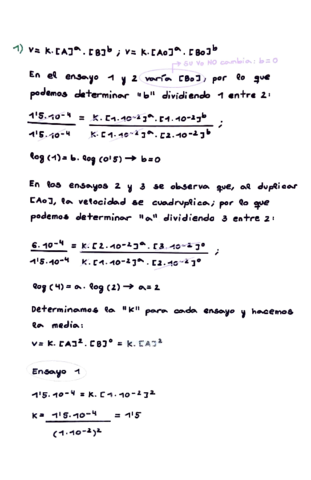 1) v = K.[A]ᵃ.[B]ᵇ ; v = K.[A₀]ᵃ.[B₀]ᵇ
su v₀ NO cambia: b=0
En el ensayo 1 y 2 varía [B₀], por lo que
podemos determinar "b" dividiendo 1 entre 2:
1'5.10⁻⁴ / 1'5.10⁻⁴ = K.[1.10⁻²]ᵃ.[1.10⁻²]ᵇ / K.[1.10⁻²]ᵃ.[2.10⁻²]ᵇ ;
log(1) = b. log(0'5) → b=0
En los ensayos 2 y 3 se observa que, al duplicar
[A₀], la velocidad se cuadruplica; por lo que
podemos determinar "a" dividiendo 3 entre 2:
6.10⁻⁴ / 1'5.10⁻⁴ = K.[2.10⁻²]ᵃ.[3.10⁻²]⁰ / K.[1.10⁻²]ᵃ.[2.10⁻²]⁰ ;
log(4) = a. log(2) → a=2
Determinamos la "K" para cada ensayo y hacemos
la media:
v = K.[A]².[B]⁰ = K.[A]²
Ensayo 1
1'5.10⁻⁴ = K.[1.10⁻²]²
K = 1'5.10⁻⁴ / (1.10⁻²)² = 1'5